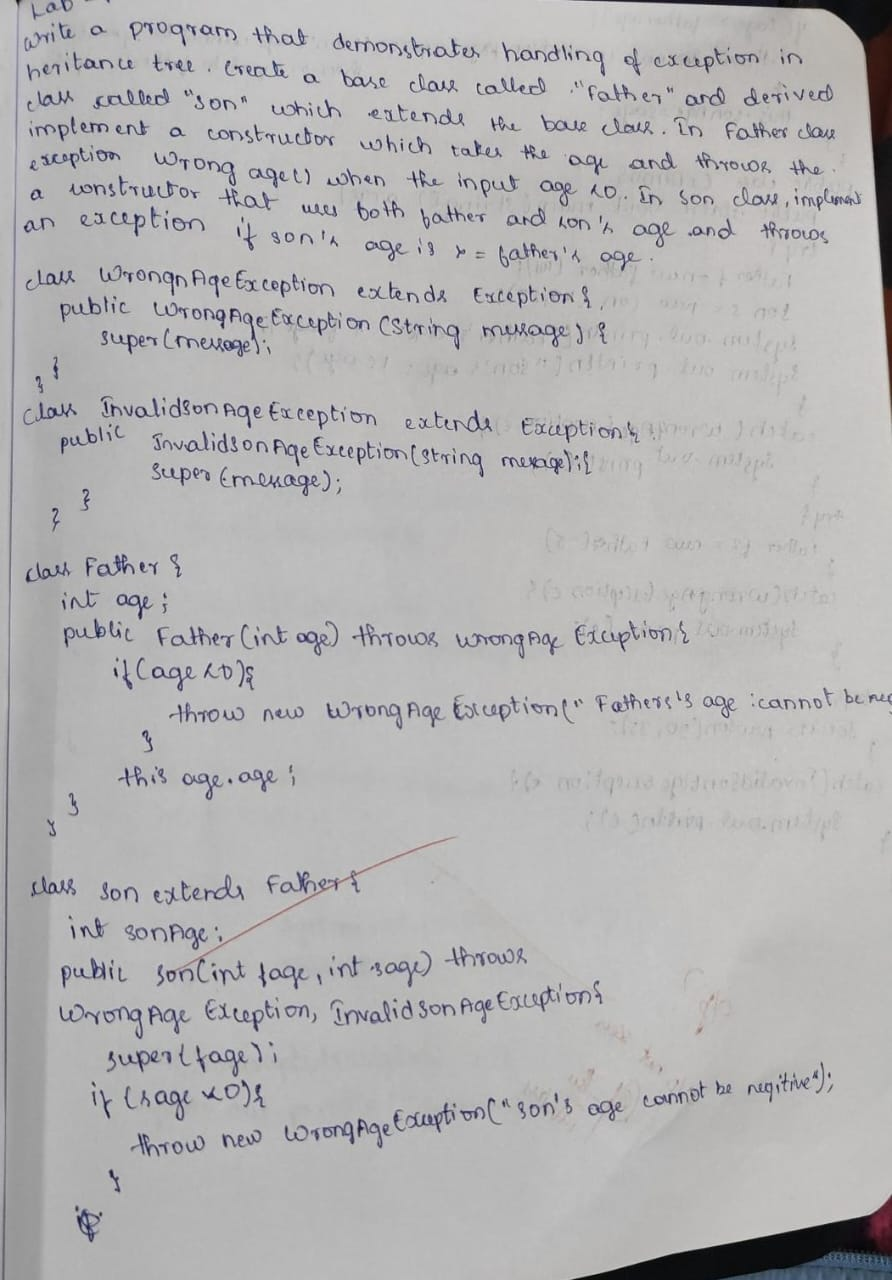 Lab
write a program that demonstrates handling of exception in
heritance tree. Create a base class called "Father" and derived
class called "son" which extends the base class. In Father class
implement a constructor which takes the age and throws the
exception Wrong age() when the input age <0. In son class, implement
a constructor that uses both father and son's age and throws
an exception if son's age is >= father's age.
class WrongnAgeException extends Exception {
public WrongAgeException (String message) {
super(message);
}
}
class InvalidsonAgeException extends Exception {
public InvalidsonAgeException(string message);{
super (message);
}
}
class Father {
int age;
public Father(int age) throws wrongAge Exception{
if(age <0){
throw new WrongAge Exception(" Fathers's age :cannot be neg
}
this age.age;
}
}
class son extends Father{
int sonAge;
public son(int fage, int sage) throws
WrongAge Exception, InvalidsonAgeException{
super(fage);
if (sage <0){
throw new wrongAgeException("son's age cannot be negitive");
}